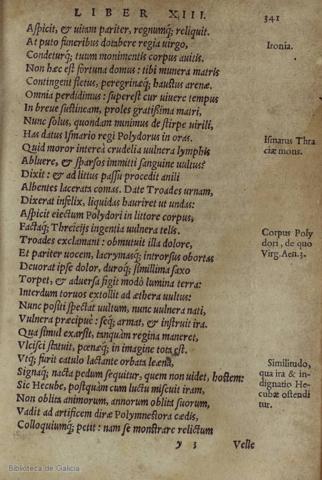 LIBER XIII.
341
Aspicit, & uitam pariter, regnumq́; reliquit.
At puto funeribus dotabere regia uirgo,
Ironia.
Condeturq́; tuum monimentis corpus auitis.
Non hæc est fortuna domus: tibi munera matris
Contingent fletus, peregrinæq́; haustus arenæ.
Omnia perdidimus: superest cur uiuere tempus
In breue sustineam, proles gratissima matri,
Nunc solus, quondam minimus de stirpe uirili,
Has datus Ismario regi Polydorus in oras.
Ismarus Thra
ciæ mons.
Quid moror intereà crudelia uulnera lymphis
Abluere, & sparsos immiti sanguine uultus?
Dixit: & ad littus passu procedit anili
Albentes lacerata comas. Date Troades urnam,
Dixerat infelix, liquidas hauriret ut undas:
Aspicit eiectum Polydori in littore corpus,
Factaq́; Threicijs ingentia uulnera telis.
Corpus Poly
dori, de quo
Virg. Aen. 3.
Troades exclamant: obmutuit illa dolore,
Et pariter uocem, lacrymasq́; introrsus obortas
Deuorat ipse dolor, duroq́; simillima saxo
Torpet, & aduersa figit modò lumina terra:
Interdum toruos extollit ad æthera uultus:
Nunc positi spectat uultum, nunc uulnera nati,
Vulnera præcipuè: seq́; armat, & instruit ira.
Qua simul exarsit, tanquàm regina maneret,
Vlcisci statuit, pœnæq́; in imagine tota est.
Vtq́; furit catulo lactante orbata leæna,
Similitudo,
qua ira & in-
dignatio He-
cubæ ostendi
tur.
Signaq́; nacta pedum sequitur, quem non uidet, hostem:
Sic Hecube, postquàm cum luctu miscuit iram,
Non oblita animorum, annorum oblita suorum,
Vadit ad artificem diræ Polymnestora cædis,
Colloquiumq́; petit: nam se monstrare relictum
y 3
Velle
Biblioteca de Galicia